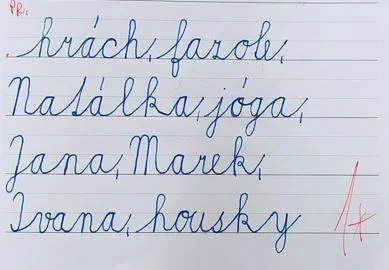 PR.
hrách, fazole,
Natálka, jóga,
Jana, Marek,
Ivana, housky
1*